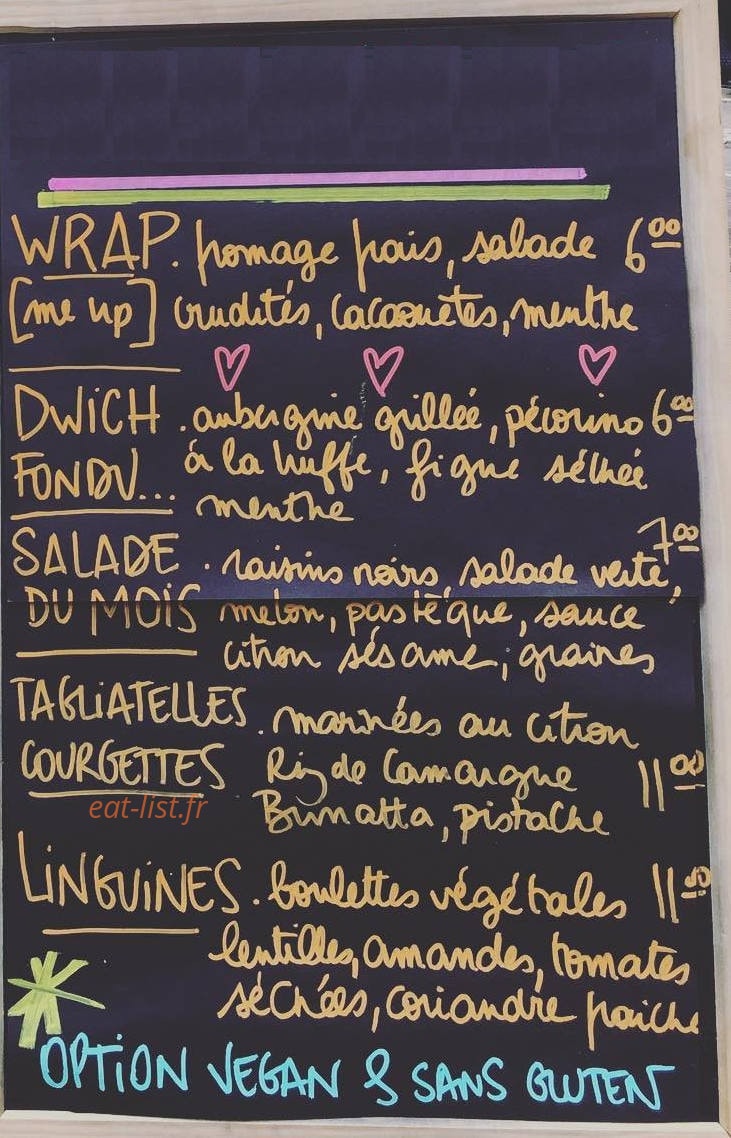 WRAP. fromage frais, salade 6⁰⁰
[me up] crudités, cacaouètes, menthe
DWICH . aubergine grillée, pécorino 6⁰⁰
FONDU... à la truffe, figue séchée
menthe
SALADE . raisins noirs, salade verte, 7⁰⁰
DU MOIS melon, pastèque, sauce
citron sésame, graines
TAGLIATELLES . marinées au citron
COURGETTES Riz de Camargue 11⁰⁰
eat-list.fr
Burratta, pistache
LINGUINES . boulettes végétales 11⁰⁰
lentilles, amandes, tomates
séchées, coriandre fraiche
OPTION VEGAN & SANS GLUTEN